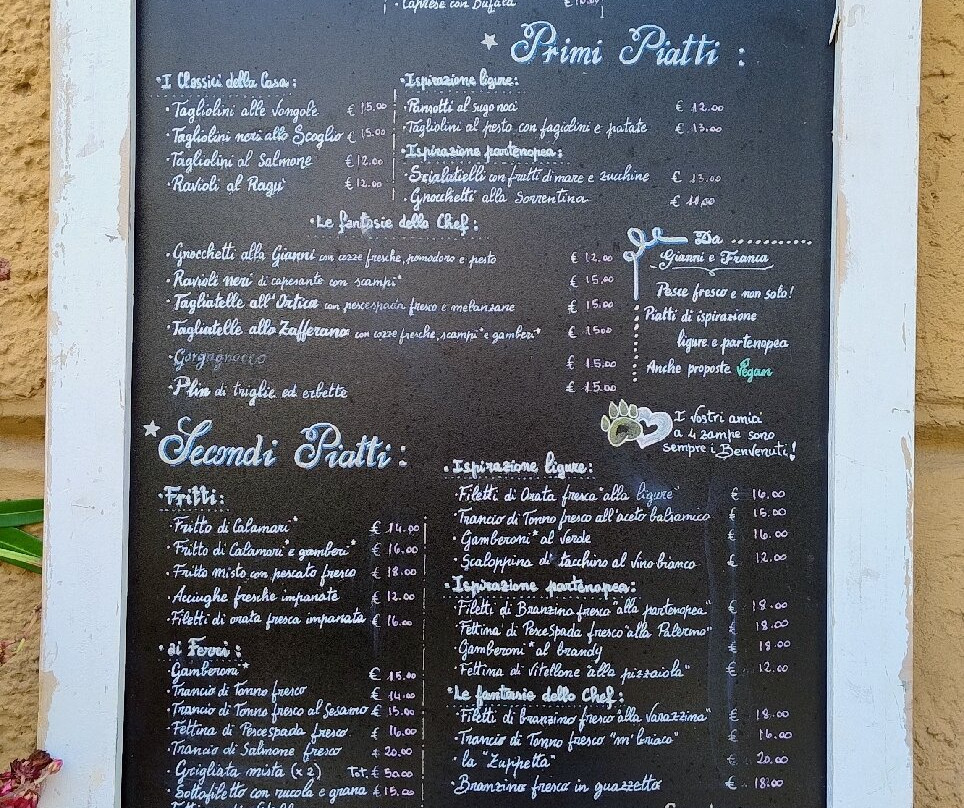 Caprese con Bufala € 10.00
Primi Piatti :
I Classici della Casa :
· Tagliolini alle Vongole € 15.00
· Tagliolini neri allo Scoglio € 15.00
· Tagliolini al Salmone € 12.00
· Ravioli al Ragu' € 12.00
· Ispirazione ligure :
· Pansotti al sugo noci € 12.00
· Tagliolini al pesto con fagiolini e patate € 13.00
· Ispirazione partenopea :
· Scialatielli con frutti di mare e zucchine € 13.00
· Gnocchetti alla Sorrentina € 11,00
· Le fantasie dello Chef :
· Gnocchetti alla Gianni con cozze fresche, pomodoro e pesto € 12.00
· Ravioli neri di capesante con scampi* € 15.00
· Tagliatelle all'Ortica con pescespada fresco e melanzane € 15.00
· Tagliatelle allo Zafferano con cozze fresche, scampi* e gamberi* € 15.00
€ 15.00
· Plin di triglie ed erbette € 15.00
Da ............
Gianni e Franca
Pesce fresco e non solo!
Piatti di ispirazione
ligure e partenopea
Anche proposte Vegan
I vostri amici
a 4 zampe sono
sempre i Benvenuti!
Secondi Piatti :
· Fritti :
· Fritto di Calamari* € 14.00
· Fritto di Calamari* e gamberi* € 16.00
· Fritto misto con pescato fresco € 18.00
· Acciughe fresche impanate € 12.00
· Filetti di orata fresca impanata € 16.00
· ai Ferri :
· Gamberoni* € 15.00
· Trancio di Tonno fresco € 14.00
· Trancio di Tonno fresco al Sesamo € 15.00
· Fettina di Pesce Spada fresco € 16.00
· Trancio di Salmone fresco € 20.00
· Grigliata mista (x 2) Tot. € 50.00
· Sottofiletto con rucola e grana € 15.00
· Ispirazione ligure :
· Filetti di Orata fresca "alla ligure" € 16.00
· Trancio di Tonno fresco all'aceto balsamico € 15.00
· Gamberoni* al verde € 16.00
· Scaloppina di tacchino al Vino bianco € 12.00
· Ispirazione partenopea :
· Filetti di Branzino fresco "alla partenopea" € 18.00
· Fettina di Pesce Spada fresco "alla Palermo" € 18.00
· Gamberoni* al brandy € 18.00
· Fettina di Vitellone "alla pizzaiola" € 12.00
· Le fantasie dello Chef :
· Filetti di branzino fresco "alla Varazzina" € 18.00
· Trancio di Tonno fresco € 16.00
· la "Zuppetta" € 20.00
· Branzino fresco in guazzetto € 18.00